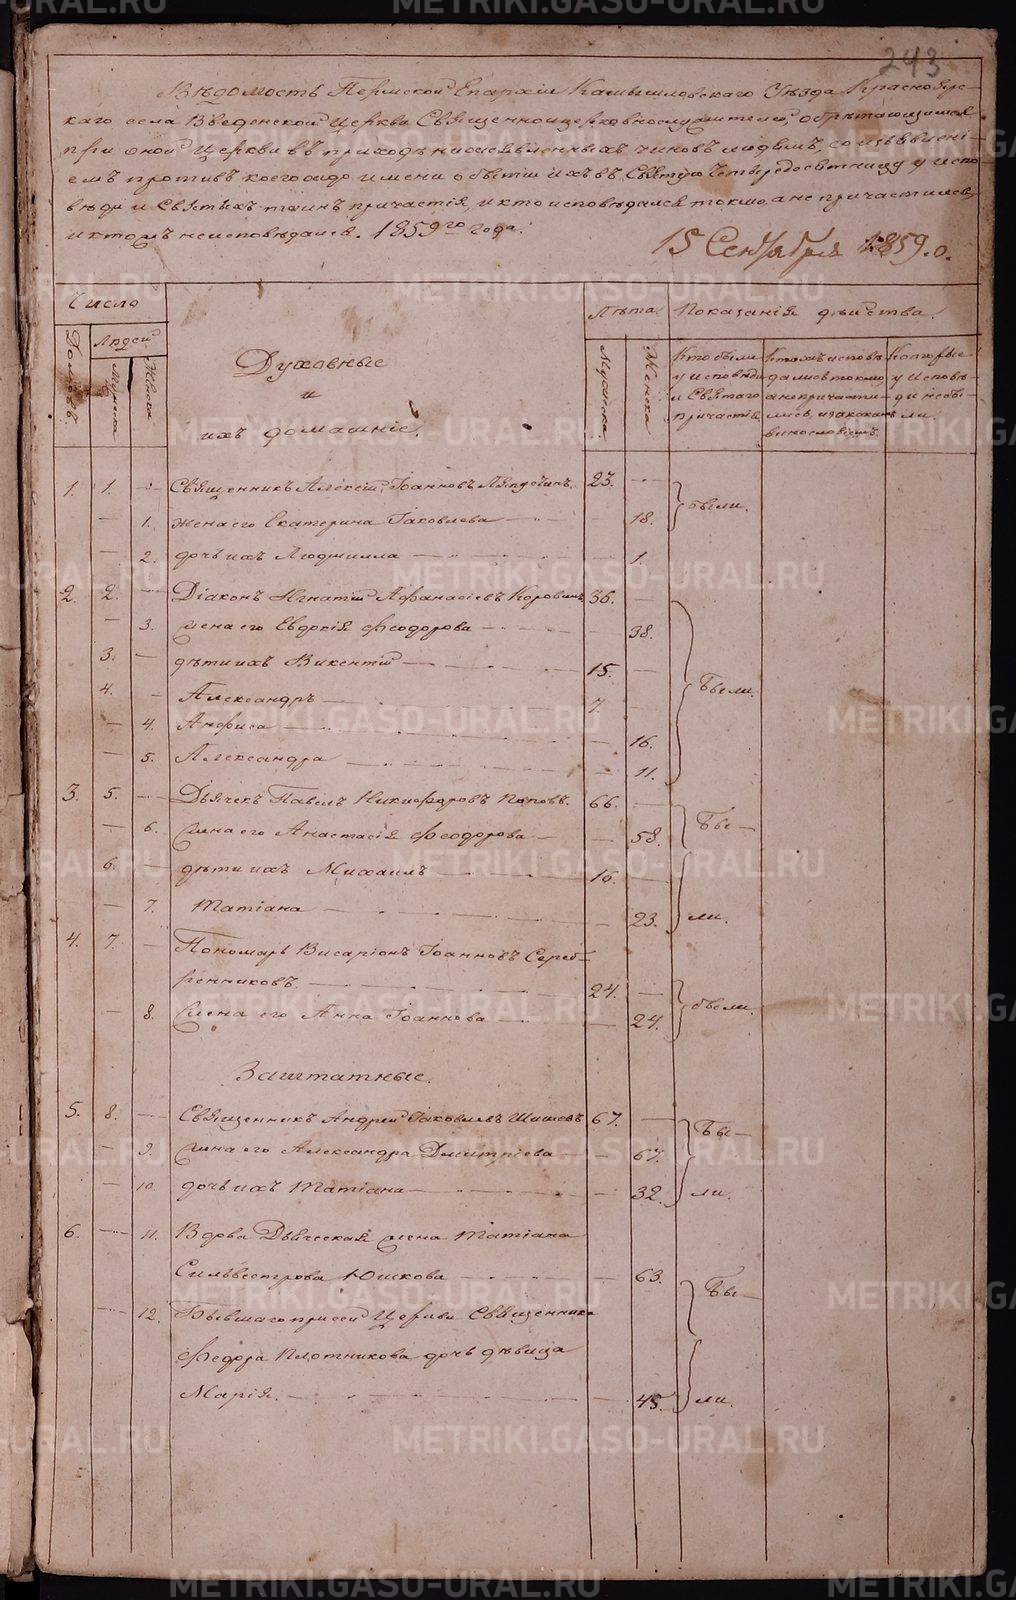 243
Вѣдомость Пермской Епархіи Камышловскаго Уѣзда Красноярс-
каго села Введенской Церкви Священноцерковнослужителей, обрѣтающимся
при оной Церкви въ приходѣ нижеявленныхъ чиновъ людямъ, со изъявлені-
емъ противъ коегождо имени о бытіи ихъ въ Святую Четыредесятницу у испо
вѣди и Святыхъ таинъ причастія, и кто исповѣдался токмо, а не причастился,
и кто жъ неисповѣдался. 1859го года.
15 Сентября 1859. о.
Число
Лѣта
Показанія дѣйства.
Домовъ.
Людей
Мужеска
Женска
Духовные
и
ихъ домашніе.
Мужеска
Женска
Кто были
у исповѣди
и Святаго
причастія
Кто жъ исповѣ
дались токмо,
а не причасти-
лись, и за какимъ
винословіемъ.
Которые
у исповѣ-
ди не бы-
ли.
1. 1. — Священникъ Алексій Іоанновъ Ляпустинъ. 23. — были.
— 1. жена его Екатерина Іаковлева — 18.
— 2. дочь ихъ Людмилла — 1.
2. 2. — Діаконъ Игнатій Афанасіевъ Коровинъ 36. —
— 3. жена его Евдокія Феодорова — 38.
3. — дѣти ихъ Викентій — 15. —
4. — Александръ — 7. — Были.
— 4. Анфиса — 16.
— 5. Александра — 11.
3. 5. — Дьячекъ Павелъ Никифоровъ Поповъ. 66. —
— 6. жена его Анастасія Феодорова — 58. Бы—
6. — дѣти ихъ Михаилъ — 16. —
7. Татіана — 23. ли.
4. 7. — Пономарь Висаріонъ Іоанновъ Сереб-
ренниковъ. — 24. — были.
— 8. Жена его Анна Іоаннова — 24.
Заштатные.
5. 8. — Священникъ Андрей Іаковлевъ Шишевъ 67. — Бы—
— 9. жена его Александра Дмитріева — 67.
— 10. дочь ихъ Татіана — 32. ли.
6. — 11. Вдова Дьяческая жена Татіана
Сильвестрова Юшкова — 63. Бы—
12. Бывшаго при сей Церкви Священника
Федора Плотникова дочь дѣвица
Марія. — 45. ли.
METRIKI.GASO-URAL.RU